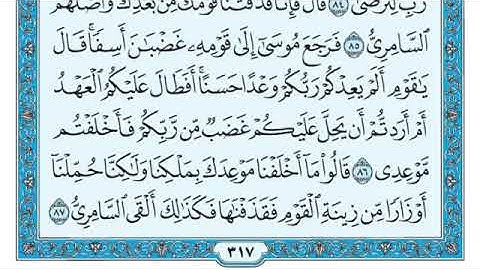 رَبِّ لِتَرۡضَىٰ ٨٤ قَالَ فَإِنَّا قَدۡ فَتَنَّا قَوۡمَكَ مِنۢ بَعۡدِكَ وَأَضَلَّهُمُ
ٱلسَّامِرِيُّ ٨٥ فَرَجَعَ مُوسَىٰٓ إِلَىٰ قَوۡمِهِۦ غَضۡبَٰنَ أَسِفٗاۚ قَالَ
يَٰقَوۡمِ أَلَمۡ يَعِدۡكُمۡ رَبُّكُمۡ وَعۡدًا حَسَنًاۚ أَفَطَالَ عَلَيۡكُمُ ٱلۡعَهۡدُ
أَمۡ أَرَدتُّمۡ أَن يَحِلَّ عَلَيۡكُمۡ غَضَبٞ مِّن رَّبِّكُمۡ فَأَخۡلَفۡتُم
مَّوۡعِدِي ٨٦ قَالُواْ مَآ أَخۡلَفۡنَا مَوۡعِدَكَ بِمَلۡكِنَا وَلَٰكِنَّا حُمِّلۡنَآ
أَوۡزَارٗا مِّن زِينَةِ ٱلۡقَوۡمِ فَقَذَفۡنَٰهَا فَكَذَٰلِكَ أَلۡقَى ٱلسَّامِرِيُّ ٨٧
٣١٧